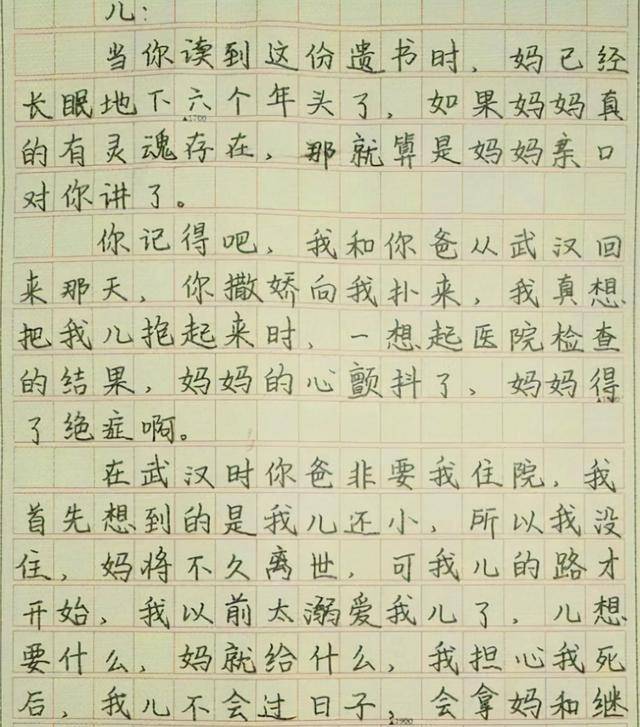 儿：
当你读到这份遗书时，妈已经
长眠地下六个年头了，如果妈妈真
的有灵魂存在，那就算是妈妈亲口
对你讲了。
你记得吧，我和你爸从武汉回
来那天，你撒娇向我扑来，我真想
把我儿抱起来时，一想起医院检查
的结果，妈妈的心颤抖了，妈妈得
了绝症啊。
在武汉时你爸非要我住院，我
首先想到的是我儿还小，所以我没
住，妈将不久离世，可我儿的路才
开始，我以前太溺爱我儿了，儿想
要什么，妈就给什么，我担心我死
后，我儿不会过日子，会拿妈和继